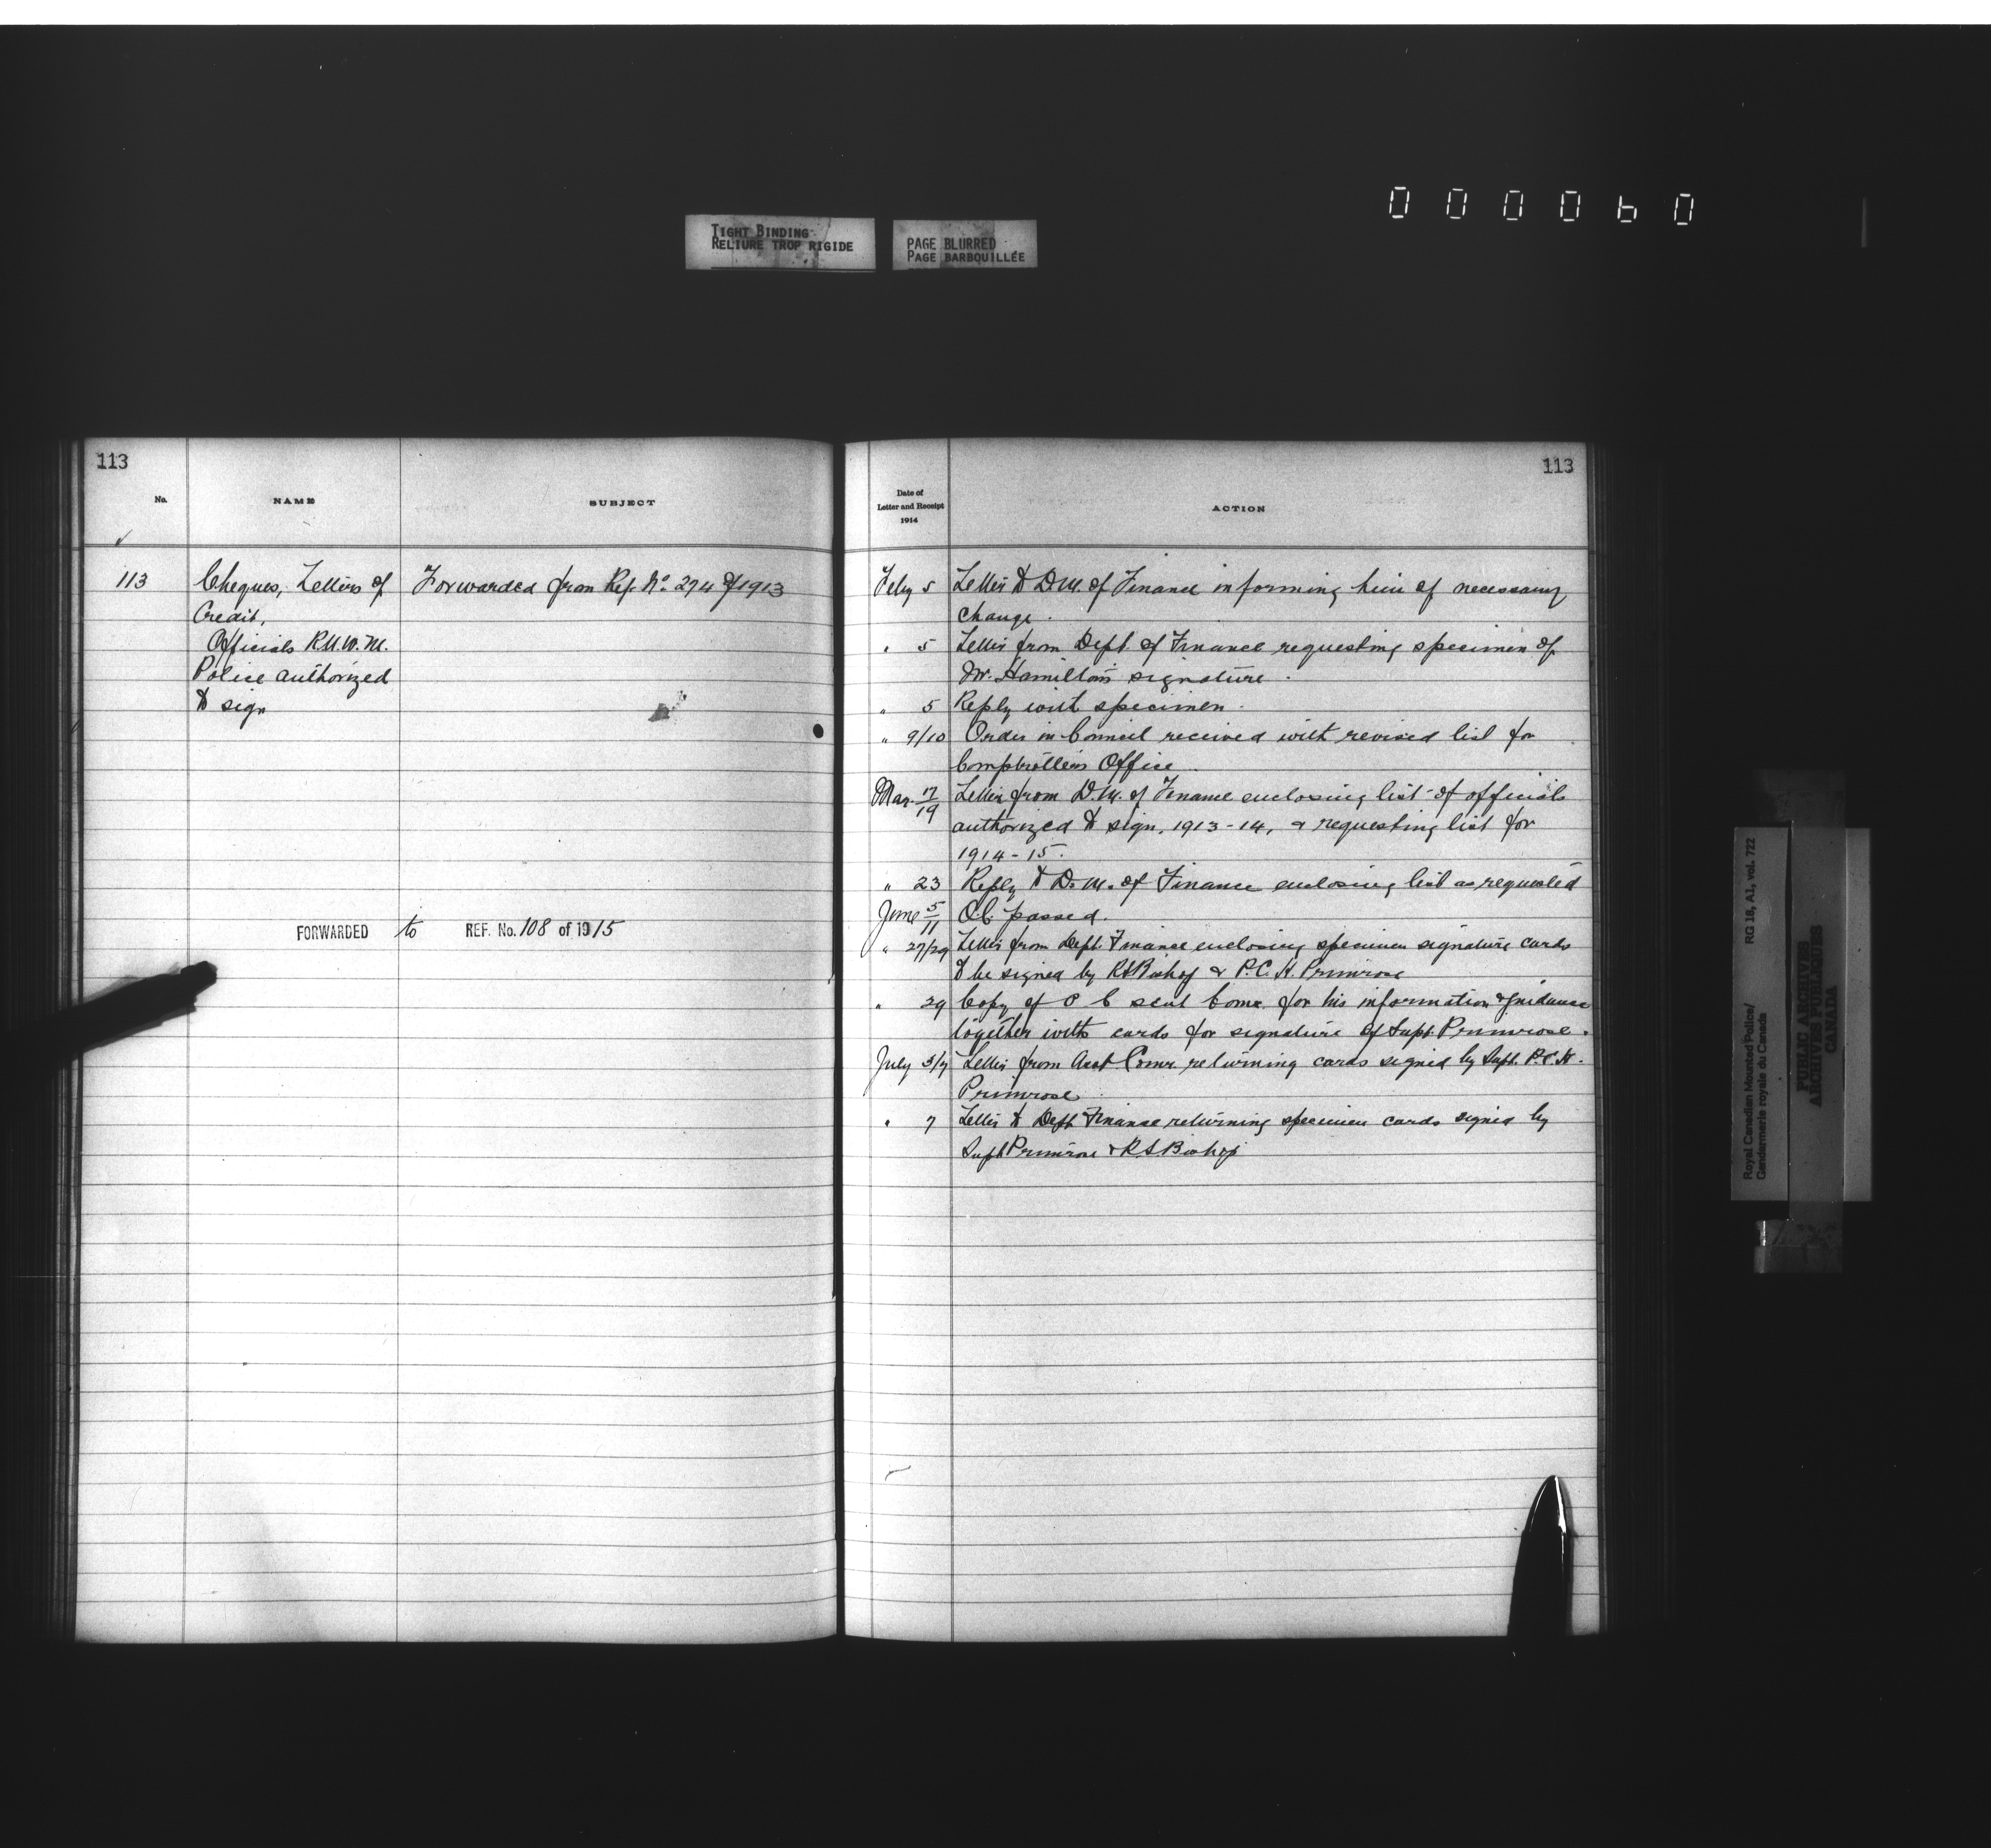 000060
TIGHT BINDING
RELIURE TROP RIGIDE
PAGE BLURRED
PAGE BARBOUILLÉE
113
No.
NAME
SUBJECT
113 Cheques, Letters of
Credit,
Officials R.N.W.M.
Police authorized
to sign
Forwarded from Ref. No. 274 of 1913
FORWARDED to REF. No. 108 of 1915
113
Date of
Letter and Receipt
1914
ACTION
Feby 5 Letter to D.M. of Finance informing him of necessary
change.
" 5 Letter from Dept. of Finance requesting specimen of
Mr. Hamilton's signature.
" 5 Reply with specimen.
" 9/10 Order in Council received with revised list for
Comptroller's Office.
Mar. 17/19 Letter from D.M. of Finance enclosing list of officials
authorized to sign, 1913-14, & requesting list for
1914-15.
" 23 Reply to D.M. of Finance enclosing list as requested
June 5/11 O.C. passed.
" 27/29 Letter from Dept. Finance enclosing specimen signature cards
to be signed by RSBishop & P.C.H. Primrose
" 29 Copy of O C sent Comr. for his information & guidance
together with cards for signature of Supt. Primrose.
July 3/7 Letter from Asst. Comr. returning cards signed by Supt. P.C.H.
Primrose
" 7 Letter to Dept Finance returning specimen cards signed by
Supt Primrose & R.S.Bishop
Royal Canadian Mounted Police/
Gendarmerie royale du Canada
RG 18, A1, vol. 722
PUBLIC ARCHIVES
ARCHIVES PUBLIQUES
CANADA